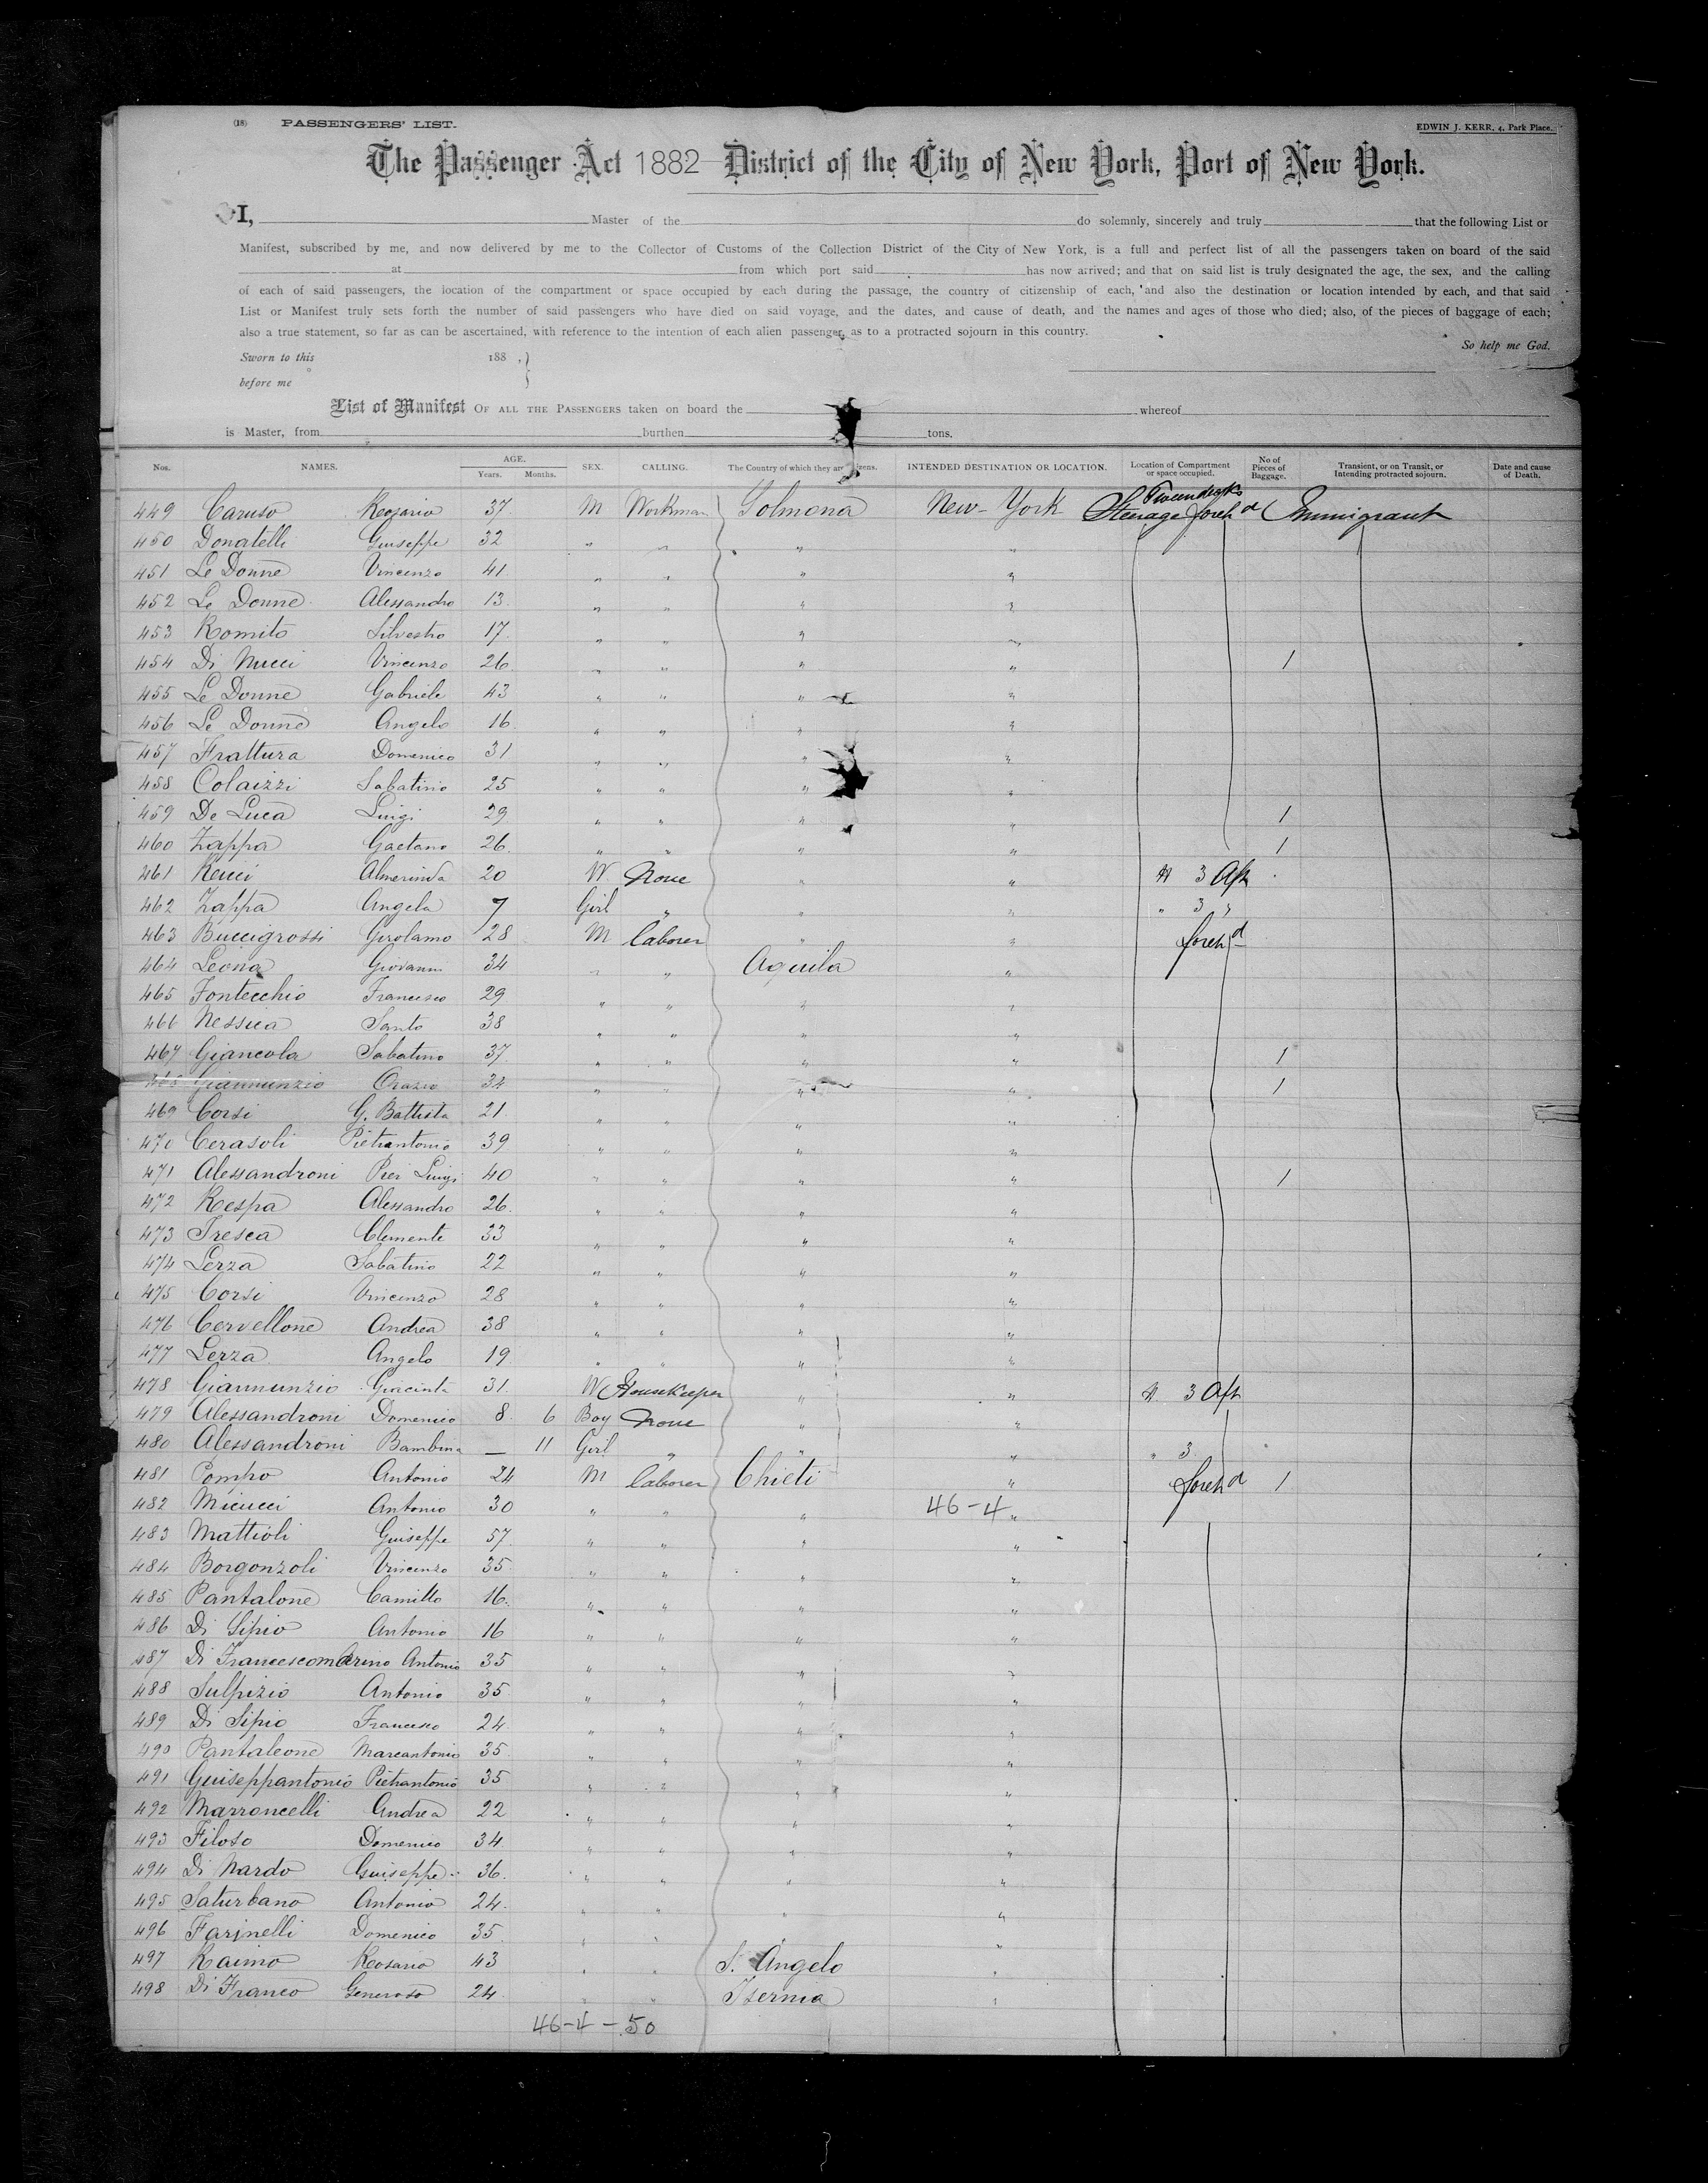 (18) PASSENGERS' LIST. EDWIN J. KERR, 4, Park Place.
The Passenger Act 1882 District of the City of New York, Port of New York.
I, Master of the do solemnly, sincerely and truly that the following List or
Manifest, subscribed by me, and now delivered by me to the Collector of Customs of the Collection District of the City of New York, is a full and perfect list of all the passengers taken on board of the said
at from which port said has now arrived; and that on said list is truly designated the age, the sex, and the calling
of each of said passengers, the location of the compartment or space occupied by each during the passage, the country of citizenship of each, and also the destination or location intended by each, and that said
List or Manifest truly sets forth the number of said passengers who have died on said voyage, and the dates, and cause of death, and the names and ages of those who died; also, of the pieces of baggage of each;
also a true statement, so far as can be ascertained, with reference to the intention of each alien passenger, as to a protracted sojourn in this country.
So help me God.
Sworn to this 188 ,
before me
List of Manifest OF ALL THE PASSENGERS taken on board the whereof
is Master, from burthen tons.
Nos. NAMES. AGE. Years. Months. SEX. CALLING. The Country of which they are Citizens. INTENDED DESTINATION OR LOCATION. Location of Compartment or space occupied. No of Pieces of Baggage. Transient, or on Transit, or Intending protracted sojourn. Date and cause of Death.
449 Caruso Rosario 37 M Workman Solmona New-York Steerage foreh d Immigrant
450 Donatelli Guiseppe 32 " " " "
451 Le Donne Vincenzo 41 " " " "
452 Le Donne Alessandro 13 " " " "
453 Romito Silvestro 17 " " " "
454 Di Nucci Vincenzo 26 " " " " 1
455 Le Donne Gabriele 43 " " " "
456 Le Donne Angelo 16 " " " "
457 Frattura Domenico 31 " " " "
458 Colaizzi Sabatino 25 " " " "
459 De Luca Luigi 29 " " " " 1
460 Zappa Gaetano 26 " " " " 1
461 Almerinda 20 W None " " 3 Aft
462 Zappa Angela 7 Girl " " " " 3 "
463 Buccigrossi Girolamo 28 M laborer " " foreh d
464 Leona Giovanni 34 " " Aquila "
465 Fontecchio Francesco 29 " " " "
466 Nessica Santo 38 " " " "
467 Giancola Sabatino 37 " " " " 1
468 Giannunzio Orazio 34 " " " " 1
469 Corsi G. Battista 21 " " " "
470 Cerasoli Pietrantonio 39 " " " "
471 Alessandroni Pier Luigi 40 " " " " 1
472 Respa Alessandro 26 " " " "
473 Tresca Clemente 33 " " " "
474 Lerza Sabatino 22 " " " "
475 Corsi Vincenzo 28 " " " "
476 Cervellone Andrea 38 " " " "
477 Lerza Angelo 19 " " " "
478 Giannunzio Giacinta 31 W Housekeeper " " 3 Aft
479 Alessandroni Domenico 8 6 Boy None " "
480 Alessandroni Bambina — 11 Girl " " " " 3
481 Pompo Antonio 24 M laborer Chieti " foreh d 1
482 Micucci Antonio 30 " " " 46-4 "
483 Mattioli Guiseppe 57 " " " "
484 Borgonzoli Vincenzo 35 " " " "
485 Pantalone Camillo 16 " " " "
486 Di Sipio Antonio 16 " " " "
487 Di Francescomarino Antonio 35 " " " "
488 Sulpizio Antonio 35 " " " "
489 Di Sipio Francesco 24 " " " "
490 Pantaleone Marcantonio 35 " " " "
491 Guiseppantonio Pietrantonio 35 " " " "
492 Marroncelli Andrea 22 " " " "
493 Filoso Domenico 34 " " " "
494 Di Nardo Guiseppe 36 " " " "
495 Saturbano Antonio 24 " " " "
496 Farinelli Domenico 35 " " " "
497 Raimo Rosario 43 " " S. Angelo "
498 Di Franco Generoso 24 " " Isernia "
46-4-50